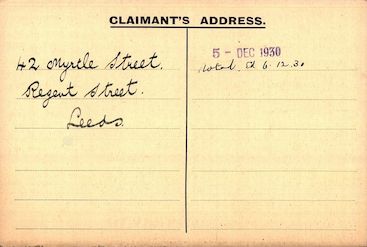 CLAIMANT'S ADDRESS.
42 Myrtle Street.
Regent Street.
Leeds.
5 - DEC 1930
6.12.30